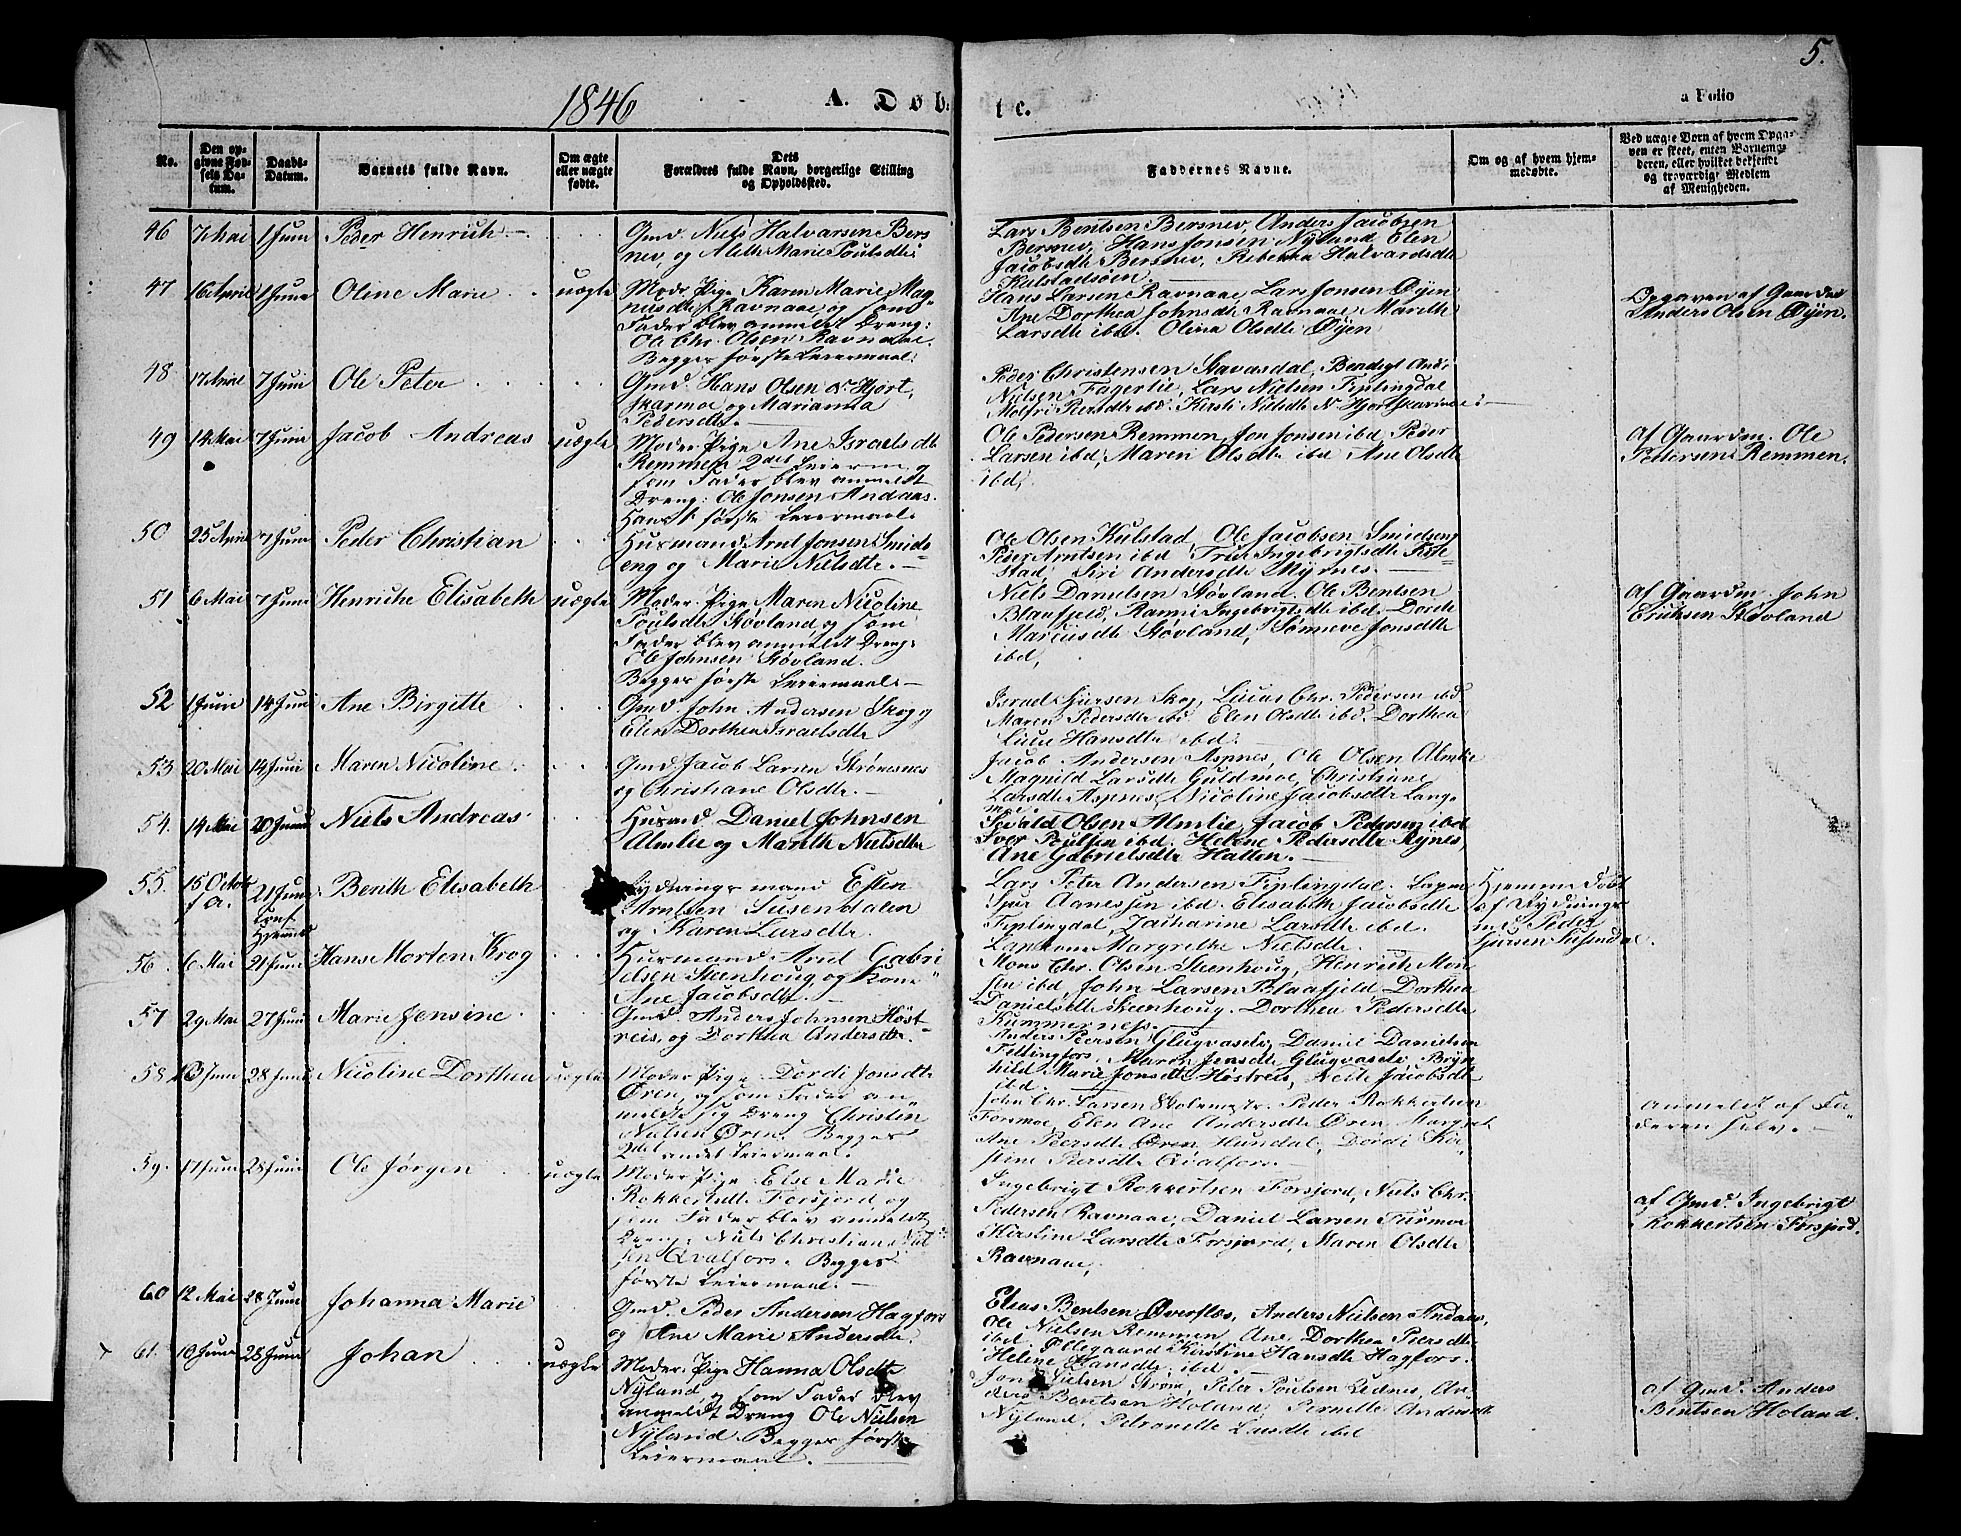 5.
1846
A. Døb
te.
a Folio
No.
Den opgivne Fødsels Datum.
Daabs-Datum.
Barnets fulde Navn.
Om ægte eller uægte fødte.
Dets Forældres fulde Navn, borgerlige Stilling og Opholdssted.
Faddernes Navne.
Om og af hvem hjemmedøbte.
Ved uægte Børn af hvem Opgaven er skeet, enten Barnemoderen, eller hvilket bekjendt og troværdigt Medlem af Menigheden.
46 7 Mai 1 Juni Peder Henrich
Gmd. Niels Halvarsen Bers
nev, og Aleth Marie Poulsdtr
Lars Bentsen Bersnev, Anders Jacobsen
Bersnev, Hans Jonsen Nyland Elen
Jacobsdtr Bersnev, Rebekka Halvardsdtr
Kulstadsøien
47 16 April 1 Juni Oline Marie uægte
Moder Pige Karen Marie Mag
nusdtr Ravnaae, og som
Fader blev anmeldt Dreng:
Ole Chr. Olsen Ravnaae.
Begges første Leiermaal.
Hans Larsen Ravnaae, Lars Jonsen Øyen
Ane Dorthea Johnsdtr Ravnaae, Marith
Larsdtr ibd. Olina Olsdtr Øyen
Opgaven af Gaardm
Anders Olsen Øyen.
48 17 April 7 Juni Ole Peter
Gmd. Hans Olsen Nr Hjort
skarmoe og Marianna
Pedersdtr.
Peder Christensen Stavasdal, Bendigt And:
Nielsen Fagerlie, Lars Nielsen Fiplingdal
Molfri Peersdtr ibd. Kirsti Nielsdtr Nr Hjortskarmoe
49 14 Mai 7 Juni Jacob Andreas uægte
Moder Pige Ane Israelsdtr
Remmen 2det Leierm, og
som Fader blev anmeldt
Dreng: Ole Jonsen Andaas.
Hans første Leiermaal.
Ole Pedersen Remmen, Jon Jonsen ibd. Peder
Larsen ibd, Maren Olsdtr ibd Ane Olsdtr
ibd,
af Gaardm. Ole
Pettersen Remmen.
50 25 April 7 Juni Peder Christian
Husmand Arnt Jonsen Smids
eng og Marie Nielsdtr.
Ole Olsen Kulstad, Ole Jacobsen Smidseng
Peder Arntsen ibd True Ingebrigtsdtr
stad, Siri Andersdtr Myrnes.
51 6 Mai 7 Juni Henriche Elisabeth uægte
Moder Pige Maren Nicoline
Poulsdtr Støvland og som
Fader blev anmeldt Dreng:
Ole Johnsen Støvland.
Begges første Leiermaal.
Niels Danielsen Støvland. Ole Bentsen
Blaafjeld, Ranni Ingebrigtsdtr ibd. Dorth
Marcusdtr Støvland, Sønneve Jonsdtr
ibd,
af Gaardm. John
Erichsen Støvland
52 1 Juni 14 Juni Ane Birgitte
Gmd. John Andersen Skog og
Elen Dorthea Israelsdtr
Israel Sjursen Skog, Lucas Chr. Pedersen ibd
Maren Pedersdtr ibd Elen Olsdtr ibd. Dorthea
Lucie Hansdtr ibd.
53 20 Mai 14 Juni Maren Nicoline
Gmd. Jacob Larsen Strømsnes
og Christiane Olsdtr.
Jacob Andersen Aspnes, Ole Olsen Almlie
Magnild Larsdtr Guldmoe, Christiane
Larsdtr Aspnes, Nicoline Jacobsdtr Lang
moe
54. 14 Mai 20 Juni Niels Andreas
Husmd Daniel Johnsen
Almlie og Marith Nielsdtr
Sivald Olsen Almlie, Jacob Pedersen ibd
Iver Poulsen ibd. Helene Pedersdtr Rynes
Ane Gabrielsdtr Hatten.
55. 15 Octob. f. a. 21 Juni Berith Elisabeth
Rydnings mand Esten
Arntsen Susendalen
og Karen Larsdtr.
Lars Peter Andersen Fiplingdal. Lapm
Sjur Agnessen ibd. Elisabeth Jacobsdtr
Fiplingdal, Zacharine Larsdtr ibd.
Lapkone Margrethe Nielsdtr.
Hjemme døbt
af Rydnings
md. Peder
Sjursen Susendal.
56. 6 Mai 21 Juni Hans Morten Krog
Husmand Arnt Gabri
elsen Steenhoug, og Kone
Ane Jacobsdtr.
Mons Chr. Olsen Steenhoug, Henrich Mon
sen ibd, John Larsen Blaafjeld Dorthea
Danielsdtr Steenhoug. Dorthea Pedersdtr
Kummernes.
57 29 Mai 27 Juni Marie Jensine
Gmd. Anders Johnsen Høst
reis, og Dorthea Andersdtr.
Anders Peersen Glugvasele, Daniel Danielsen
Fellingfors, Mareth Jensdtr Glugvasele, Bryn
hild Marie Jonsdtr Høstreis, Nille Jacobsdtr
ibd.
58 13 Juni 28 Juni Nicoline Dorthea uægte
Moder Pige Dordi Jonsdtr
Øren, og som Fader an
meldte sig Dreng Christen
Nielsen Øren. Begges
2det andet Leiermaal.
John Chr. Larsen Peder Rokkertsen
Formoe, Elen Ane Andersdtr Øren, Margret
Ane Peersdtr Øren, Hundal, Dordi Kir
stine Peersdtr Qvalfors.
anmeldt af Fa
deren selv.
59. 17 Juni 28 Juni Ole Jørgen uægte
Moder Pige Else Marie
Rokkertsdtr Forsjord, og
som Fader blev anmeldt
Dreng Niels Christian Niel
sen Qvalfors. Begges
første Leiermaal.
Ingebrigt Rokkertsen Forsjord, Niels Chr.
Pedersen Ravnaae, Daniel Larsen Furmoe
Kirstine Larsdtr Forsjord, Maren Olsdtr
Ravnaae,
af Gmd. Ingebrigt
Rokkertsen Forsjord.
60 12 Mai 28 Juni Johanna Marie
Gmd. Peder Andersen Hagfors
og Ane Marie Andersdtr,
Elias Bentsen Øverflos, Anders Nielsen Andaas,
Ole Nielsen Remmen, Ane Dorthea Peersdtr
ibd, Øllegaard Kirstine Hansdtr Hagfors.
Helene Hansdtr ibd.
61. 10 Juni 28 Juni Johan uægte
Moder Pige Hanna Olsdtr
Nyland, og som Fader blev
anmeldt Dreng Ole Nielsen
Nyland. Begges første
Leiermaal.
Jon Nielsen Strøm, Peter Poulsen An
ders Bentsen Holand, Pernille Andersdtr
Nyland, Petronelle Larsdtr ibd
af Gmd. Anders
Bentsen Holand.